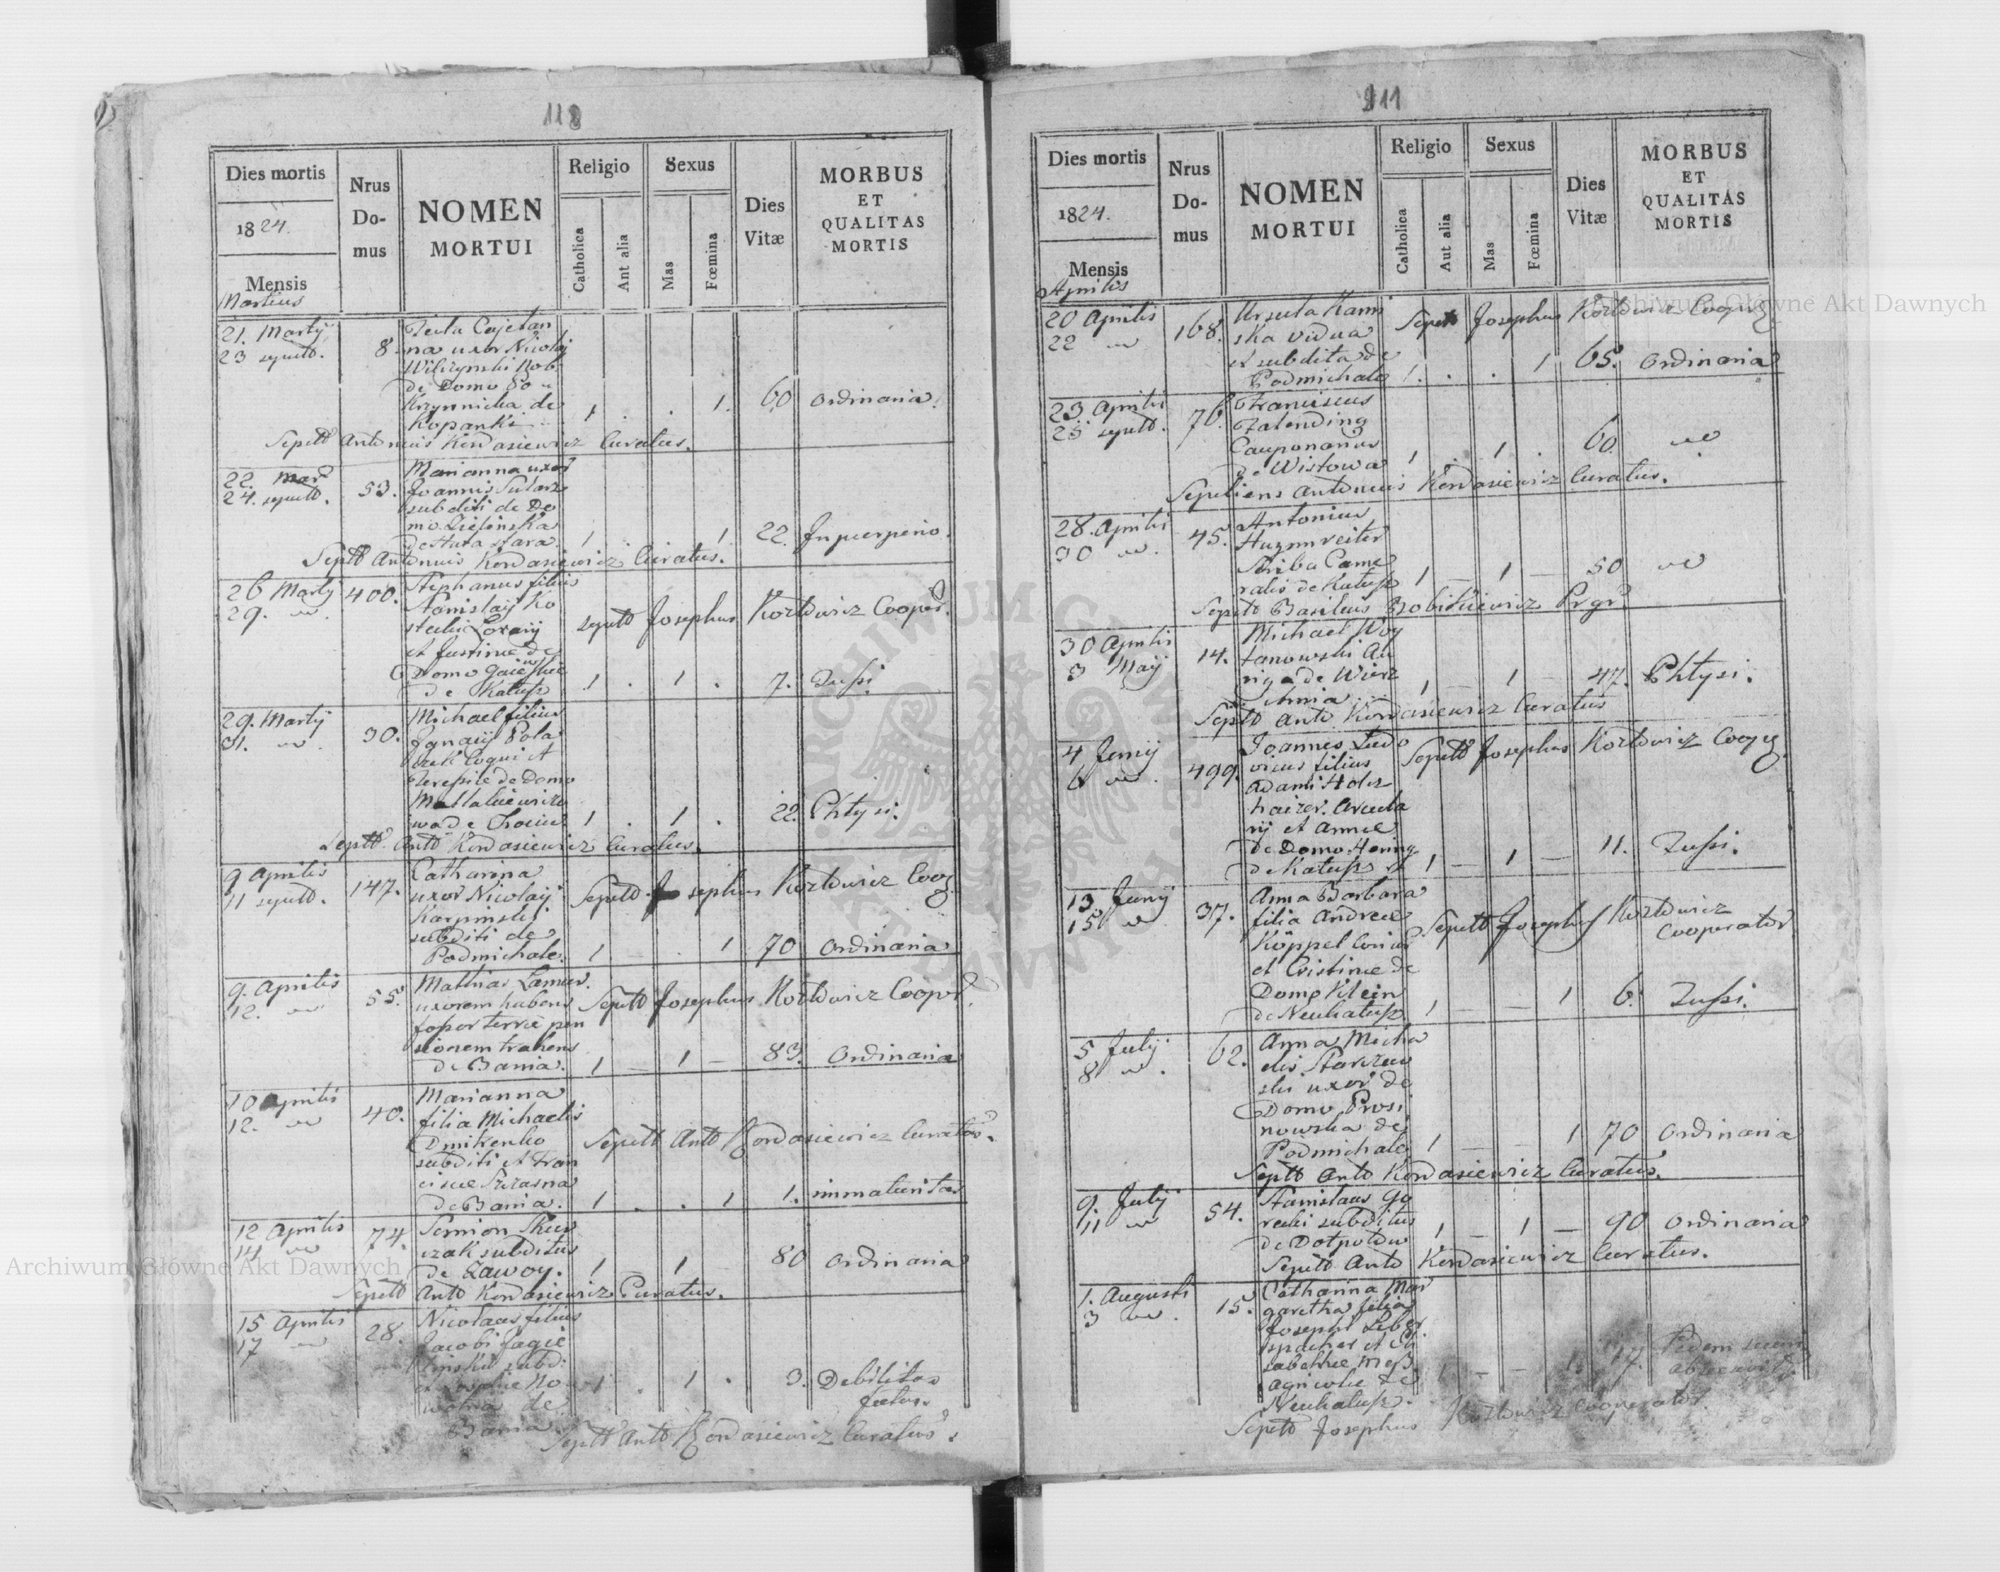 118
Dies mortis
1824.
Mensis
Martius
Nrus
Do-
mus
NOMEN
MORTUI
Religio
Catholica
Aut alia
Sexus
Mas
Fœmina
Dies
Vitæ
MORBUS
ET
QUALITAS
MORTIS
21. Martij
23 sepult.
8.
Tecla Cajetan
na uxor Nicolaj
Wilczynski Nob:
de Domo Po
Krzywnicka de
Kopanki
1 . . 1. 60 Ordinaria.
Sepelt Antonius Kordasiewicz Curatus.
22. Mar
24. sepult.
53.
Marianna uxor
Joannis
subditi de Do
mo Zielinska
de Huta stara.
1 1 22. In puerperio.
Sepelt Antonius Kordasiewicz Curatus.
26 Martij
29. "
400.
Stephanus filius
Stanislaij Ko
et Justinae de
Domo
de Kalusz
sepelt Josephus Kozlowicz Cooper.
1 . 1 . 7. Tussi.
29. Martij
31. "
30.
Michael filius
Ignatij Pola
czek Coqui et
Teresiae de Domo
wa de
1 . 1 . 22. Phtysi.
Sepelt Anto Kordasiewicz Curatus.
9 Aprilis
11 sepult.
147.
Catharina
uxor Nicolaij
Karpinski
subditi de
Podmichale.
Sepelt Josephus Kozlowicz Coop.
1 . 1 70 Ordinaria
9. Aprilis
12. "
55.
Mathias
uxorem habens
fossor terrae pen
sionem trahens
de Bania.
Sepelt Josephus Kozlowicz Cooper.
1 — 1 — 83. Ordinaria
10 Aprilis
12. "
40.
Marianna
filia Michaelis
Dmitrenko
subditi et Fran
ciscae
de Bania.
Sepelt Anto Kordasiewicz Curatus.
1 . . 1 1. immaturitas
12 Aprilis
14. "
74.
Semion
czak subditus
de Zawoy.
1 1 80 Ordinaria
Sepelt Anto Kordasiewicz Curatus.
15 Aprilis
17 "
28.
Nicolaus filius
Jacobi Jagie
subd:
de
Bania
1 . 1 . 3. Debilitas
Sepelt Anto Kordasiewicz Curatus.
111
Dies mortis
1824.
Mensis
Aprilis
Nrus
Do-
mus
NOMEN
MORTUI
Religio
Catholica
Aut alia
Sexus
Mas
Fœmina
Dies
Vitæ
MORBUS
ET
QUALITAS
MORTIS
20 Aprilis
22 "
168.
Ursula Kami
ska vidua
et subdita de
Podmichale
Sepelt Josephus Kozlowicz Cooper
1 . . 1 65. Ordinaria
23 Aprilis
25 sepult.
76.
Franciscus
Falending
Cauponarius
de Wistowa
1 . 1 . 60. "
Sepeliens Antonius Kordasiewicz Curatus.
28. Aprilis
30 ".
45.
Antonius
Scriba Came
ralis de Kalusz
1 — 1 — 50 "
Sepelt Basilius Bobikiewicz
30 Aprilis
3 Maij
14.
Michael Woy
tanowski Au
riga de Wierz
chnia
1 — 1 — 47. Phtysi.
Sepelt Anto Kordasiewicz Curatus
4 Junij
6 ".
499.
Joannes Ludo
vicus filius
Adami Holz
haizer. Arcula
rij et Annae
de Domo Honig
de Kalusz
Sepelt Josephus Kozlowicz Coop
1 — 1 — 11. Tussi.
13. Junij
15 "
37.
Anna Barbara
filia Andreae
Köppel
et Cristinae de
Domo Klein
de Neukalusz
Sepelt Josephus Kozlowicz
Cooperator
1 — — 1 6. Tussi.
5 Julij
8 ".
62.
Anna Micha
elis
ski uxor de
Domo Prosi
nowska de
Podmichale
1 — — 1 70 Ordinaria
Sepelt Anto Kordasiewicz Curatus.
9. Julij
11 "
54.
Stanislaus Go
recki subditus
de Dolpotow
1 — 1 — 90 Ordinaria
Sepelt Anto Kordasiewicz Curatus.
1. Augusti
3 "
15.
Catharina Mar
garetha filia
Josephi
et Eli
sabethae
agricolae de
Neukalusz.
1 — — 1 17.
Sepelt Josephus Kozlowicz Cooperator
Archiwum Główne Akt Dawnych
Archiwum Główne Akt Dawnych